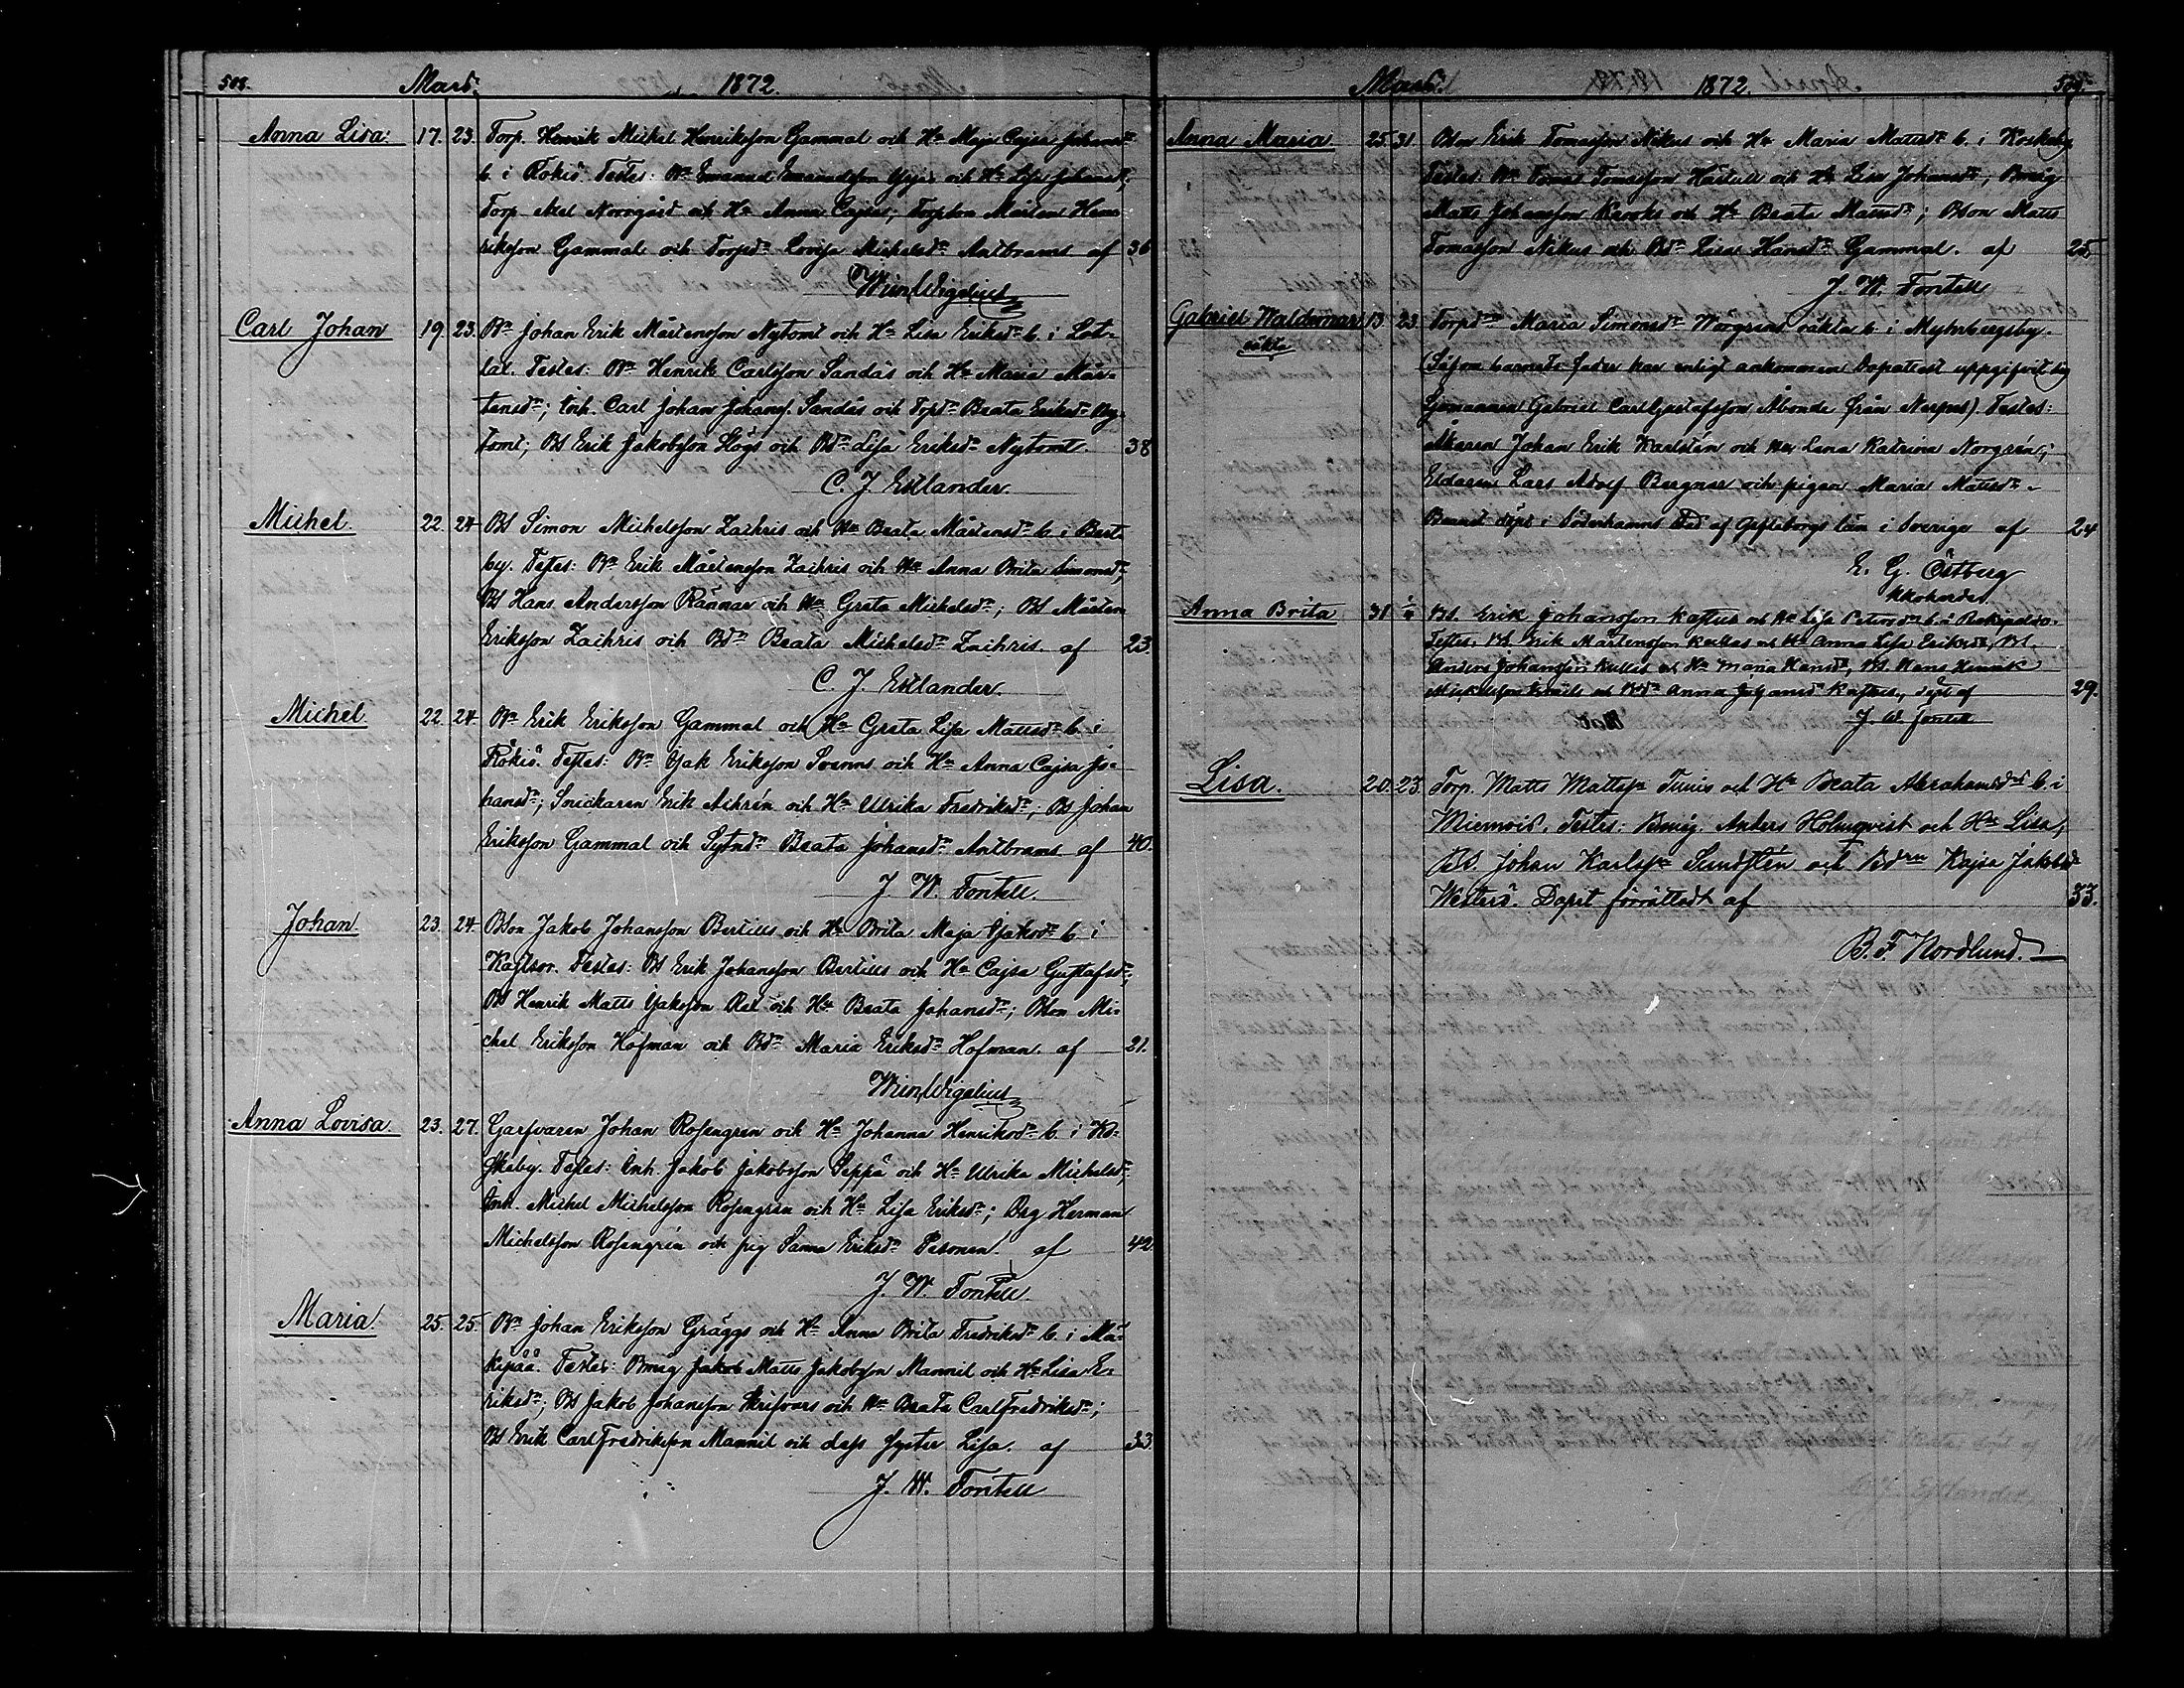 508. Mars. 1872.
Anna Lisa. 17. 23. Torp. Henrik Mickel Henriksson Gammal och Hu Maja Cajsa Johansdr
b. i Rökiö. Testes: Bn Emanuel Emanuelsson och Hu Lisa Johansdr,
Torp Axel Norrgård och Hu Anna Cajsa; Torpson Mårten Hen-
riksson Gammal och Torpdr Lovisa Michelsdr Antbrams af 36
Wilh. Wigelius
Carl Johan 19. 23. Bn Johan Erik Mårtensson Nytomt och Hu Lisa Eriksdr b. i Lot-
lax. Testes: Bn Henrik Carlsson Sandås och Hu Maria Mår-
tensdr; Inh. Carl Johan Johanss. Sandås och Torpdr Beata Eriksdr Ny-
tomt; Bs Erik Jakobsson Högs och Bdr Lisa Eriksdr Nytomt. 38
C. J. Estlander.
Michel. 22. 24 Bs Simon Michelsson Zachris och Hu Beata Mårtensdr b. i Bert-
by. Testes: Bn Erik Mårtensson Zachris och Hu Anna Brita Simonsdr,
Bs Hans Andersson Rännar och Hu Greta Michelsdr; Bs Mårten
Eriksson Zachris och Bdr Beata Michelsdr Zachris. af 23.
C. J. Estlander.
Michel. 22. 24. Bn Erik Eriksson Gammal och Hu Greta Lisa Mattsdr b. i
Rökiö. Testes: Bn Isak Eriksson Svenns och Hu Anna Cajsa Jo-
hansdr; Snickaren Erik Achrén och Hu Ulrika Fredriksdr; Bs Johan
Eriksson Gammal och Sytndr Beata Johansdr Antbrams af 40.
J. W. Fontell.
Johan. 23. 24. Bson Jakob Johansson Bertills och Hu Brita Maja Isaksdr b. i
Kaitsor. Testes: Bs Erik Johansson Bertills och Hu Cajsa Gustafsdr;
Bs Henrik Matts Isaksson och Hu Beata Johansdr; Bson Mi-
chel Eriksson Hofman och Bdr Maria Eriksdr Hofman. af 21.
Wilh. Wigelius
Anna Lovisa. 23. 27. Garfvaren Johan Rosengren och Hu Johanna Henriksdr b. i Ko-
skeby. Testes: Inh. Jakob Jakobsson Seppä och Hu Ulrika Michelsdr,
Inh. Michel Michelsson Rosengren och Hu Lisa Eriksdr; Drg Herman
Michelsson Rosengrén och pig Sanna Eriksdr Pesonen. af 42
J. W. Fontell
Maria. 25. 25. Bn Johan Eriksson Gräggs och Hu Anna Brita Fredriksdr b. i Mä-
kipää. Testes: Bmåg Jakob Matts Jakobsson Mannil och Hu Lisa E-
riksdr; Bs Jakob Johansson Skrifvars och Hu Beata CarlFredriksdr;
Bs Erik CarlFredriksson Mannil och dess syster Lisa. af 33.
J. W. Fontell
Mars. 1872. 509.
Anna Maria 25. 31. Bson Erik Tomasson Nikus och Hu Maria Mattsdr b. i Koskeby
Testes: Bn Tomas Tomasson Hartull och Hu Lisa Johansdr; Bmåg
Matts Johansson Krooks och Hu Beata Mattsdr; Bson Matts
Tomasson Nikus och Bdr Lisa Hansdr Gammal. af 25.
J. W. Fontell
Gabriel Waldemar 13. 23. Torpdrn Maria Simonsdr Wargrens oäkta b. i Myrbergsby.
oäkta
(Såsom barnets fader har enligt ankommen Dopattest uppgifvit sig
Sjömannen Gabriel CarlGustafsson Åbonde från Nerpes) Testes:
Åkaren Johan Erik Karlstén och Hu Lena Katrina Norgrén;
Eldaren Lars Adolf Bergnar och pigan Maria Mattsdr.
Barnet döpt i Söderhamns stad af Gefleborgs län i Sverige af 24
E. G. Östberg
Kkoherde.
Anna Brita 31 Bs. Erik Johansson Kaftus och Hu Lisa Petersdr b. i Rekipeldo.
Testes, Bs. Erik Mårtensson Kullas och Hu Anna Lisa Eriksdr, Bs.
Anders Johansson Kullas och Hu Maria Hansdr, Bs. Hans Henrik
och Bdr Anna Johansdr Kaftus, döpt af 29.
J. W. Fontell
Lisa. 20. 23. Torp. Matts Mattss. Tunis och Hu Beata Abrahamsdr b. i
Miemois. Testes: Bmåg. Anders Holmqvist och Hu Lisa,
Bs. Johan Karlss. Sundstén och Bdrn Kajsa Jakobsdr
Westerö. Dopet förrättadt af 33.
B. F. Nordlund.